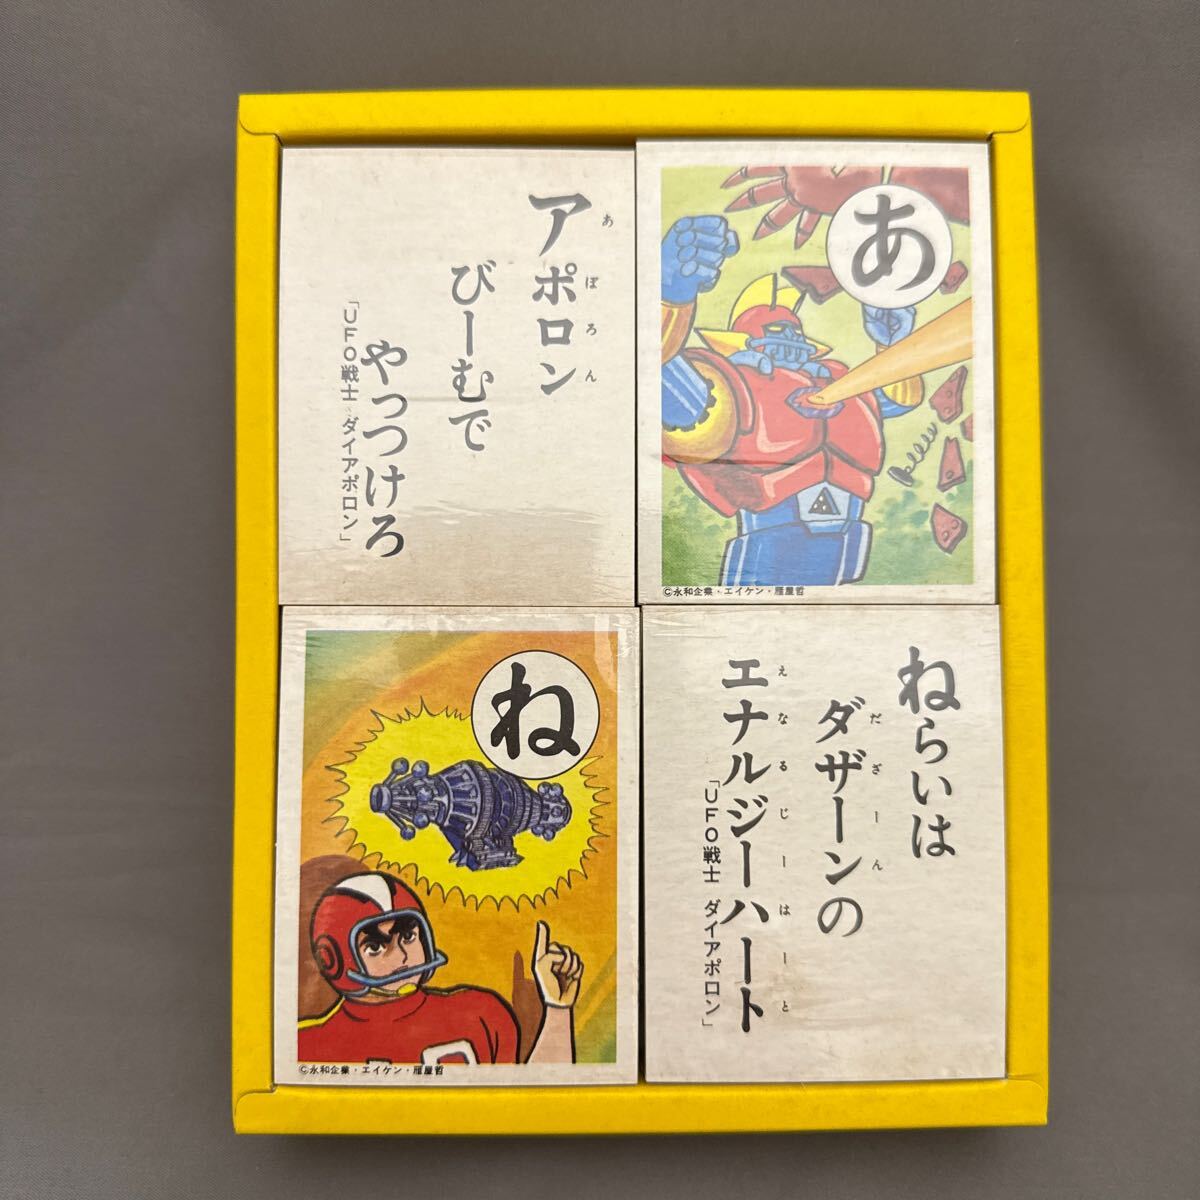 アポロン
あぽろん
びーむで
やっつけろ
「UFO戦士 ダイアポロン」
あ
©永和企業・エイケン・雁屋哲
ね
©永和企業・エイケン・雁屋哲
ねらいは
ダザーンの
だざーん
エナルジーハート
えなるじーはーと
「UFO戦士 ダイアポロン」